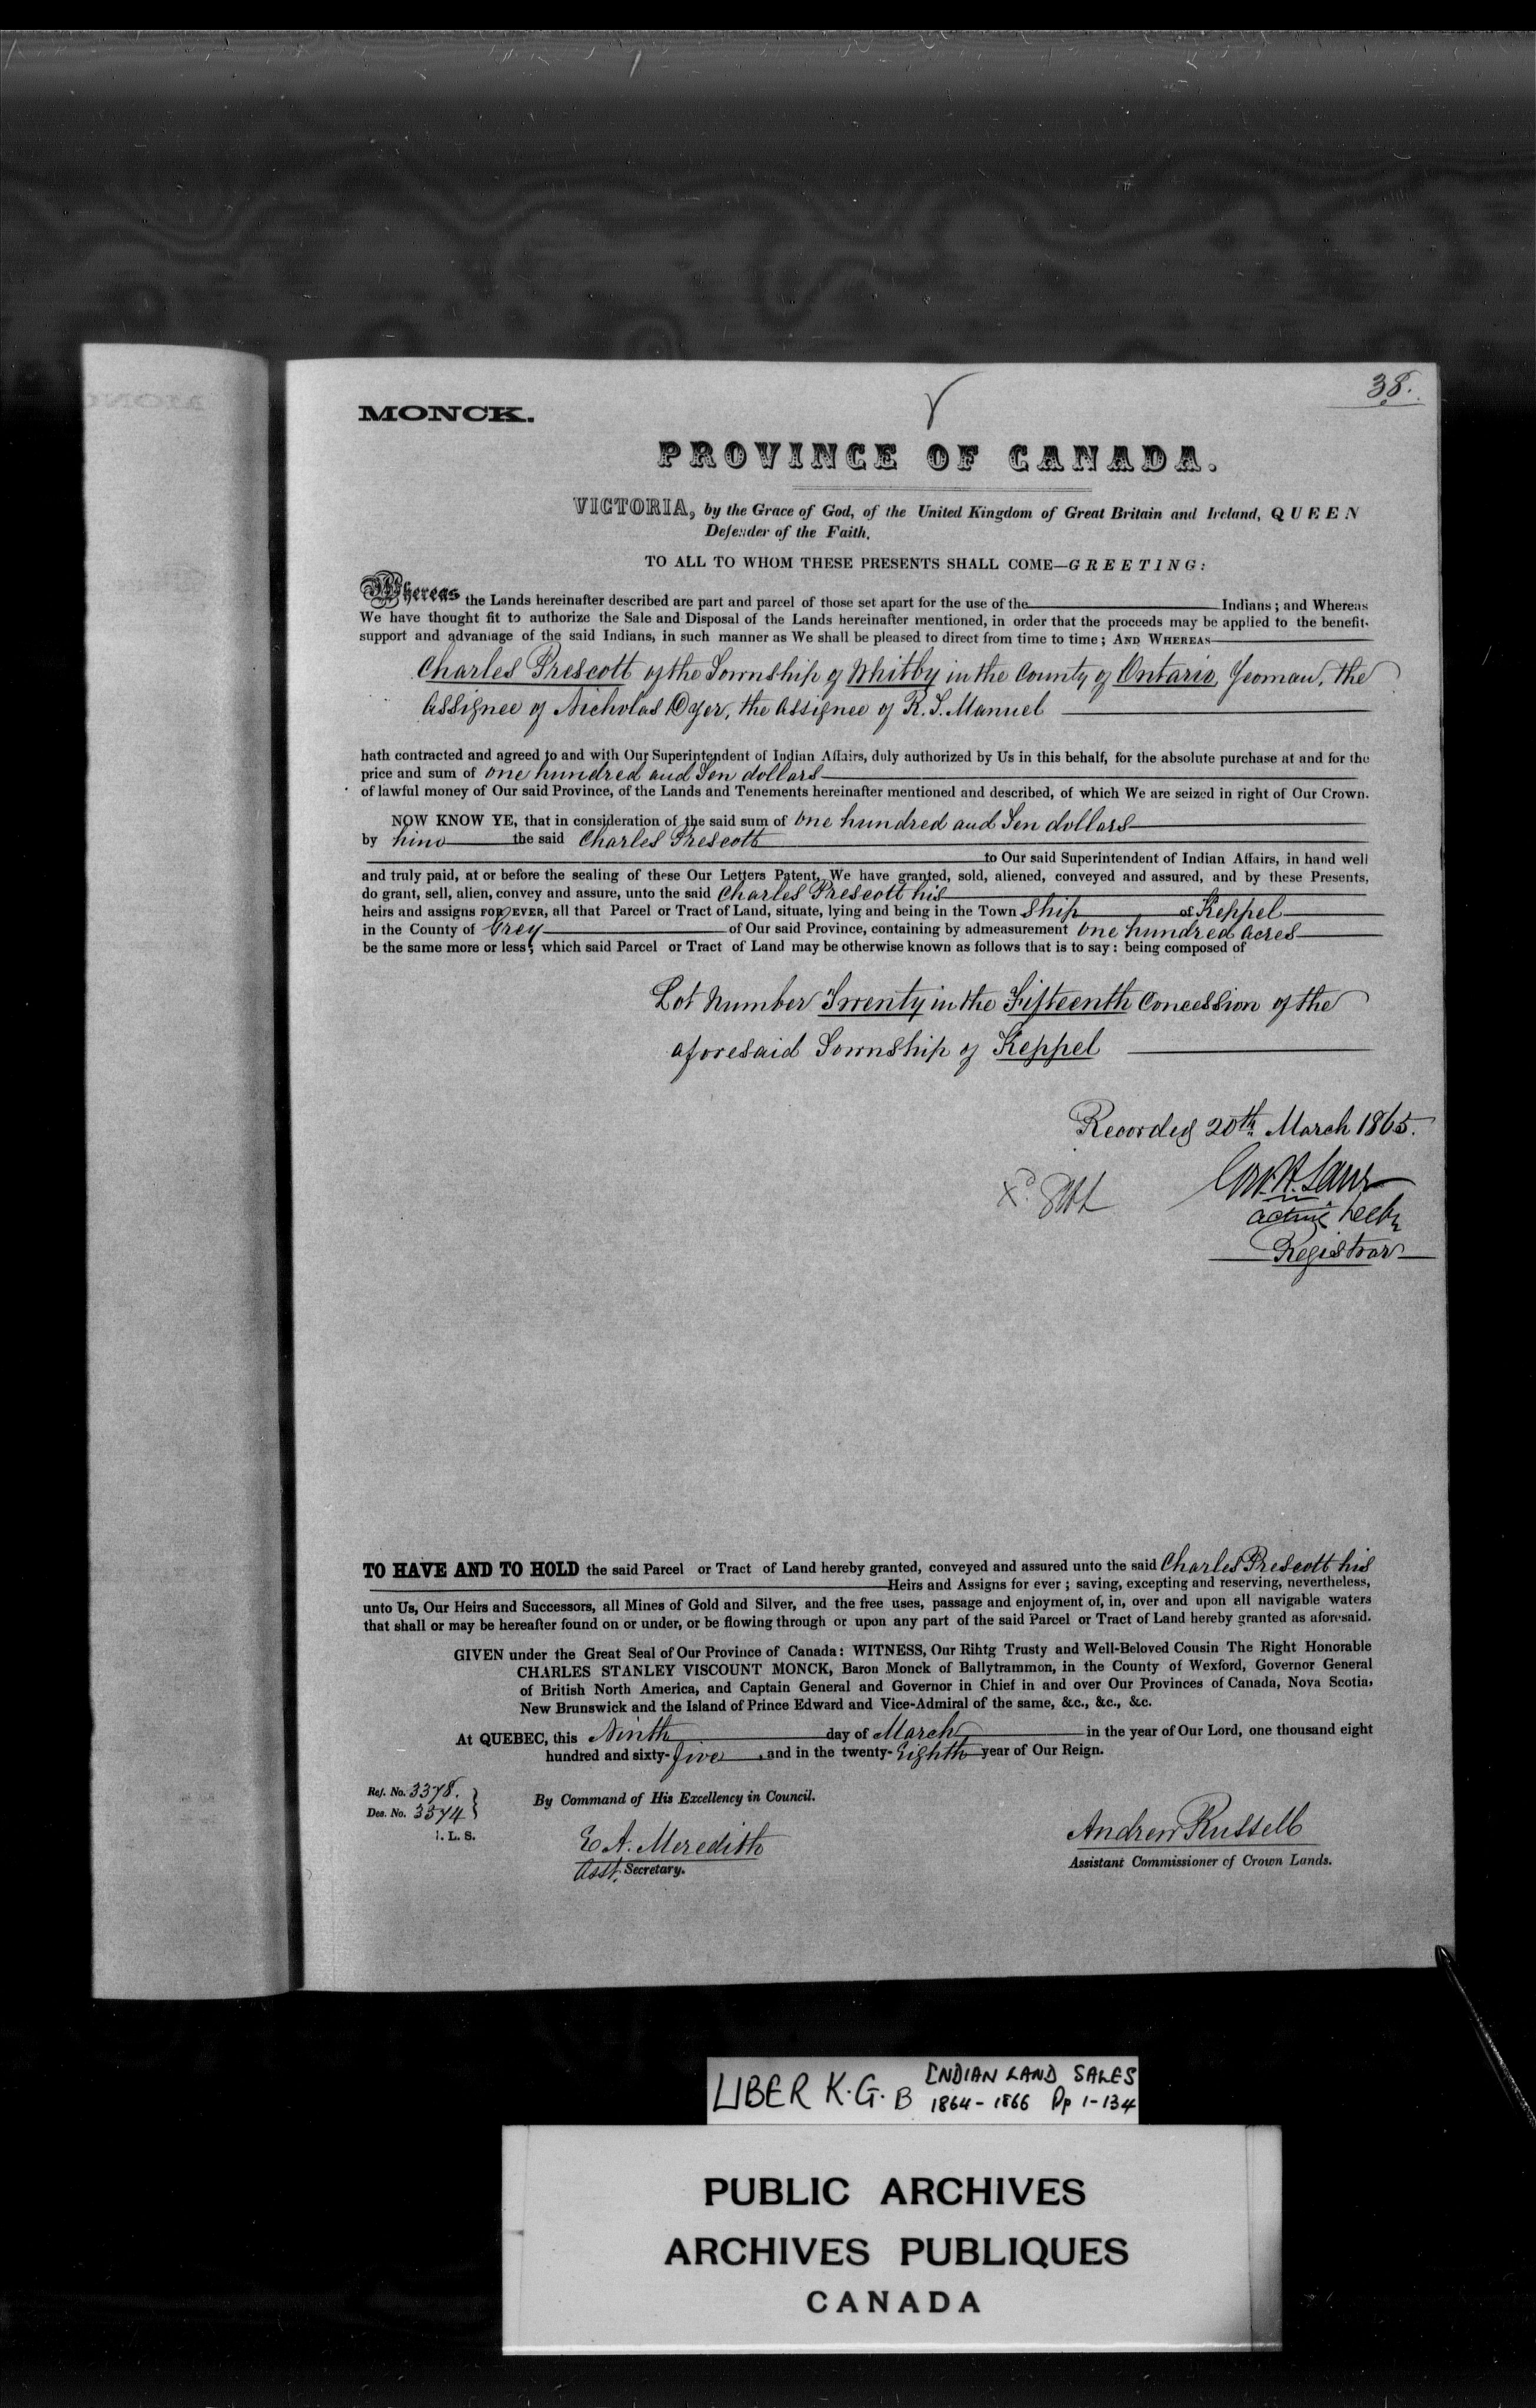 38.
MONCK.
PROVINCE OF CANADA.
VICTORIA, by the Grace of God, of the United Kingdom of Great Britain and Ireland, QUEEN
Defender of the Faith.
TO ALL TO WHOM THESE PRESENTS SHALL COME—GREETING:
Whereas the Lands hereinafter described are part and parcel of those set apart for the use of the Indians; and Whereas
We have thought fit to authorize the Sale and Disposal of the Lands hereinafter mentioned, in order that the proceeds may be applied to the benefit,
support and advantage of the said Indians, in such manner as We shall be pleased to direct from time to time; AND WHEREAS
Charles Prescott of the Township of Whitby in the County of Ontario, Yeoman, the
Assignee of Nicholas Dyer, the Assignee of R. S. Manuel
hath contracted and agreed to and with Our Superintendent of Indian Affairs, duly authorized by Us in this behalf, for the absolute purchase at and for the
price and sum of one hundred and Ten dollars
of lawful money of Our said Province, of the Lands and Tenements hereinafter mentioned and described, of which We are seized in right of Our Crown.
NOW KNOW YE, that in consideration of the said sum of one hundred and Ten dollars
by him the said Charles Prescott
to Our said Superintendent of Indian Affairs, in hand well
and truly paid, at or before the sealing of these Our Letters Patent, We have granted, sold, aliened, conveyed and assured, and by these Presents,
do grant, sell, alien, convey and assure, unto the said Charles Prescott his
heirs and assigns FOR EVER, all that Parcel or Tract of Land, situate, lying and being in the Town ship of Keppel
in the County of Grey of Our said Province, containing by admeasurement one hundred acres
be the same more or less; which said Parcel or Tract of Land may be otherwise known as follows that is to say: being composed of
Lot Number Twenty in the Fifteenth Concession of the
aforesaid Township of Keppel
Recorded 20th March 1865.
acting Deptr
Registrar
TO HAVE AND TO HOLD the said Parcel or Tract of Land hereby granted, conveyed and assured unto the said Charles Prescott his
Heirs and Assigns for ever; saving, excepting and reserving, nevertheless,
unto Us, Our Heirs and Successors, all Mines of Gold and Silver, and the free uses, passage and enjoyment of, in, over and upon all navigable waters
that shall or may be hereafter found on or under, or be flowing through or upon any part of the said Parcel or Tract of Land hereby granted as aforesaid.
GIVEN under the Great Seal of Our Province of Canada: WITNESS, Our Rihtg Trusty and Well-Beloved Cousin The Right Honorable
CHARLES STANLEY VISCOUNT MONCK, Baron Monck of Ballytrammon, in the County of Wexford, Governor General
of British North America, and Captain General and Governor in Chief in and over Our Provinces of Canada, Nova Scotia,
New Brunswick and the Island of Prince Edward and Vice-Admiral of the same, &c., &c., &c.
At QUEBEC, this Ninth day of March in the year of Our Lord, one thousand eight
hundred and sixty-five, and in the twenty-Eighth year of Our Reign.
Ref. No. 3378.
Des. No. 3374
I. L. S.
By Command of His Excellency in Council.
E A. Meredith
Asst. Secretary.
Andrew Russell
Assistant Commissioner of Crown Lands.
LIBER K.G. B INDIAN LAND SALES
1864-1866 Pp 1-134
PUBLIC ARCHIVES
ARCHIVES PUBLIQUES
CANADA